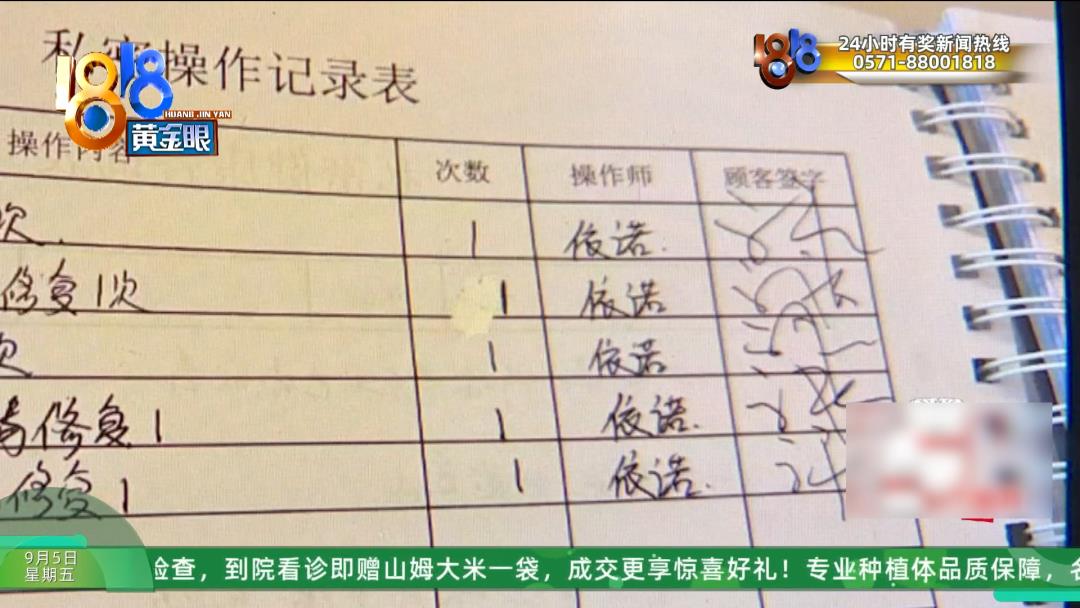 私密操作记录表
1818
HUANG JIN YAN
黄金眼
1818
24小时有奖新闻热线
0571-88001818
操作内容 次数 操作师 顾客签字
次. 1 依诺.
修复1次 1 依诺
次 1 依诺
修复1 1 依诺.
修复1 1 依诺.
9月5日
星期五
检查，到院看诊即赠山姆大米一袋，成交更享惊喜好礼！专业种植体品质保障，名